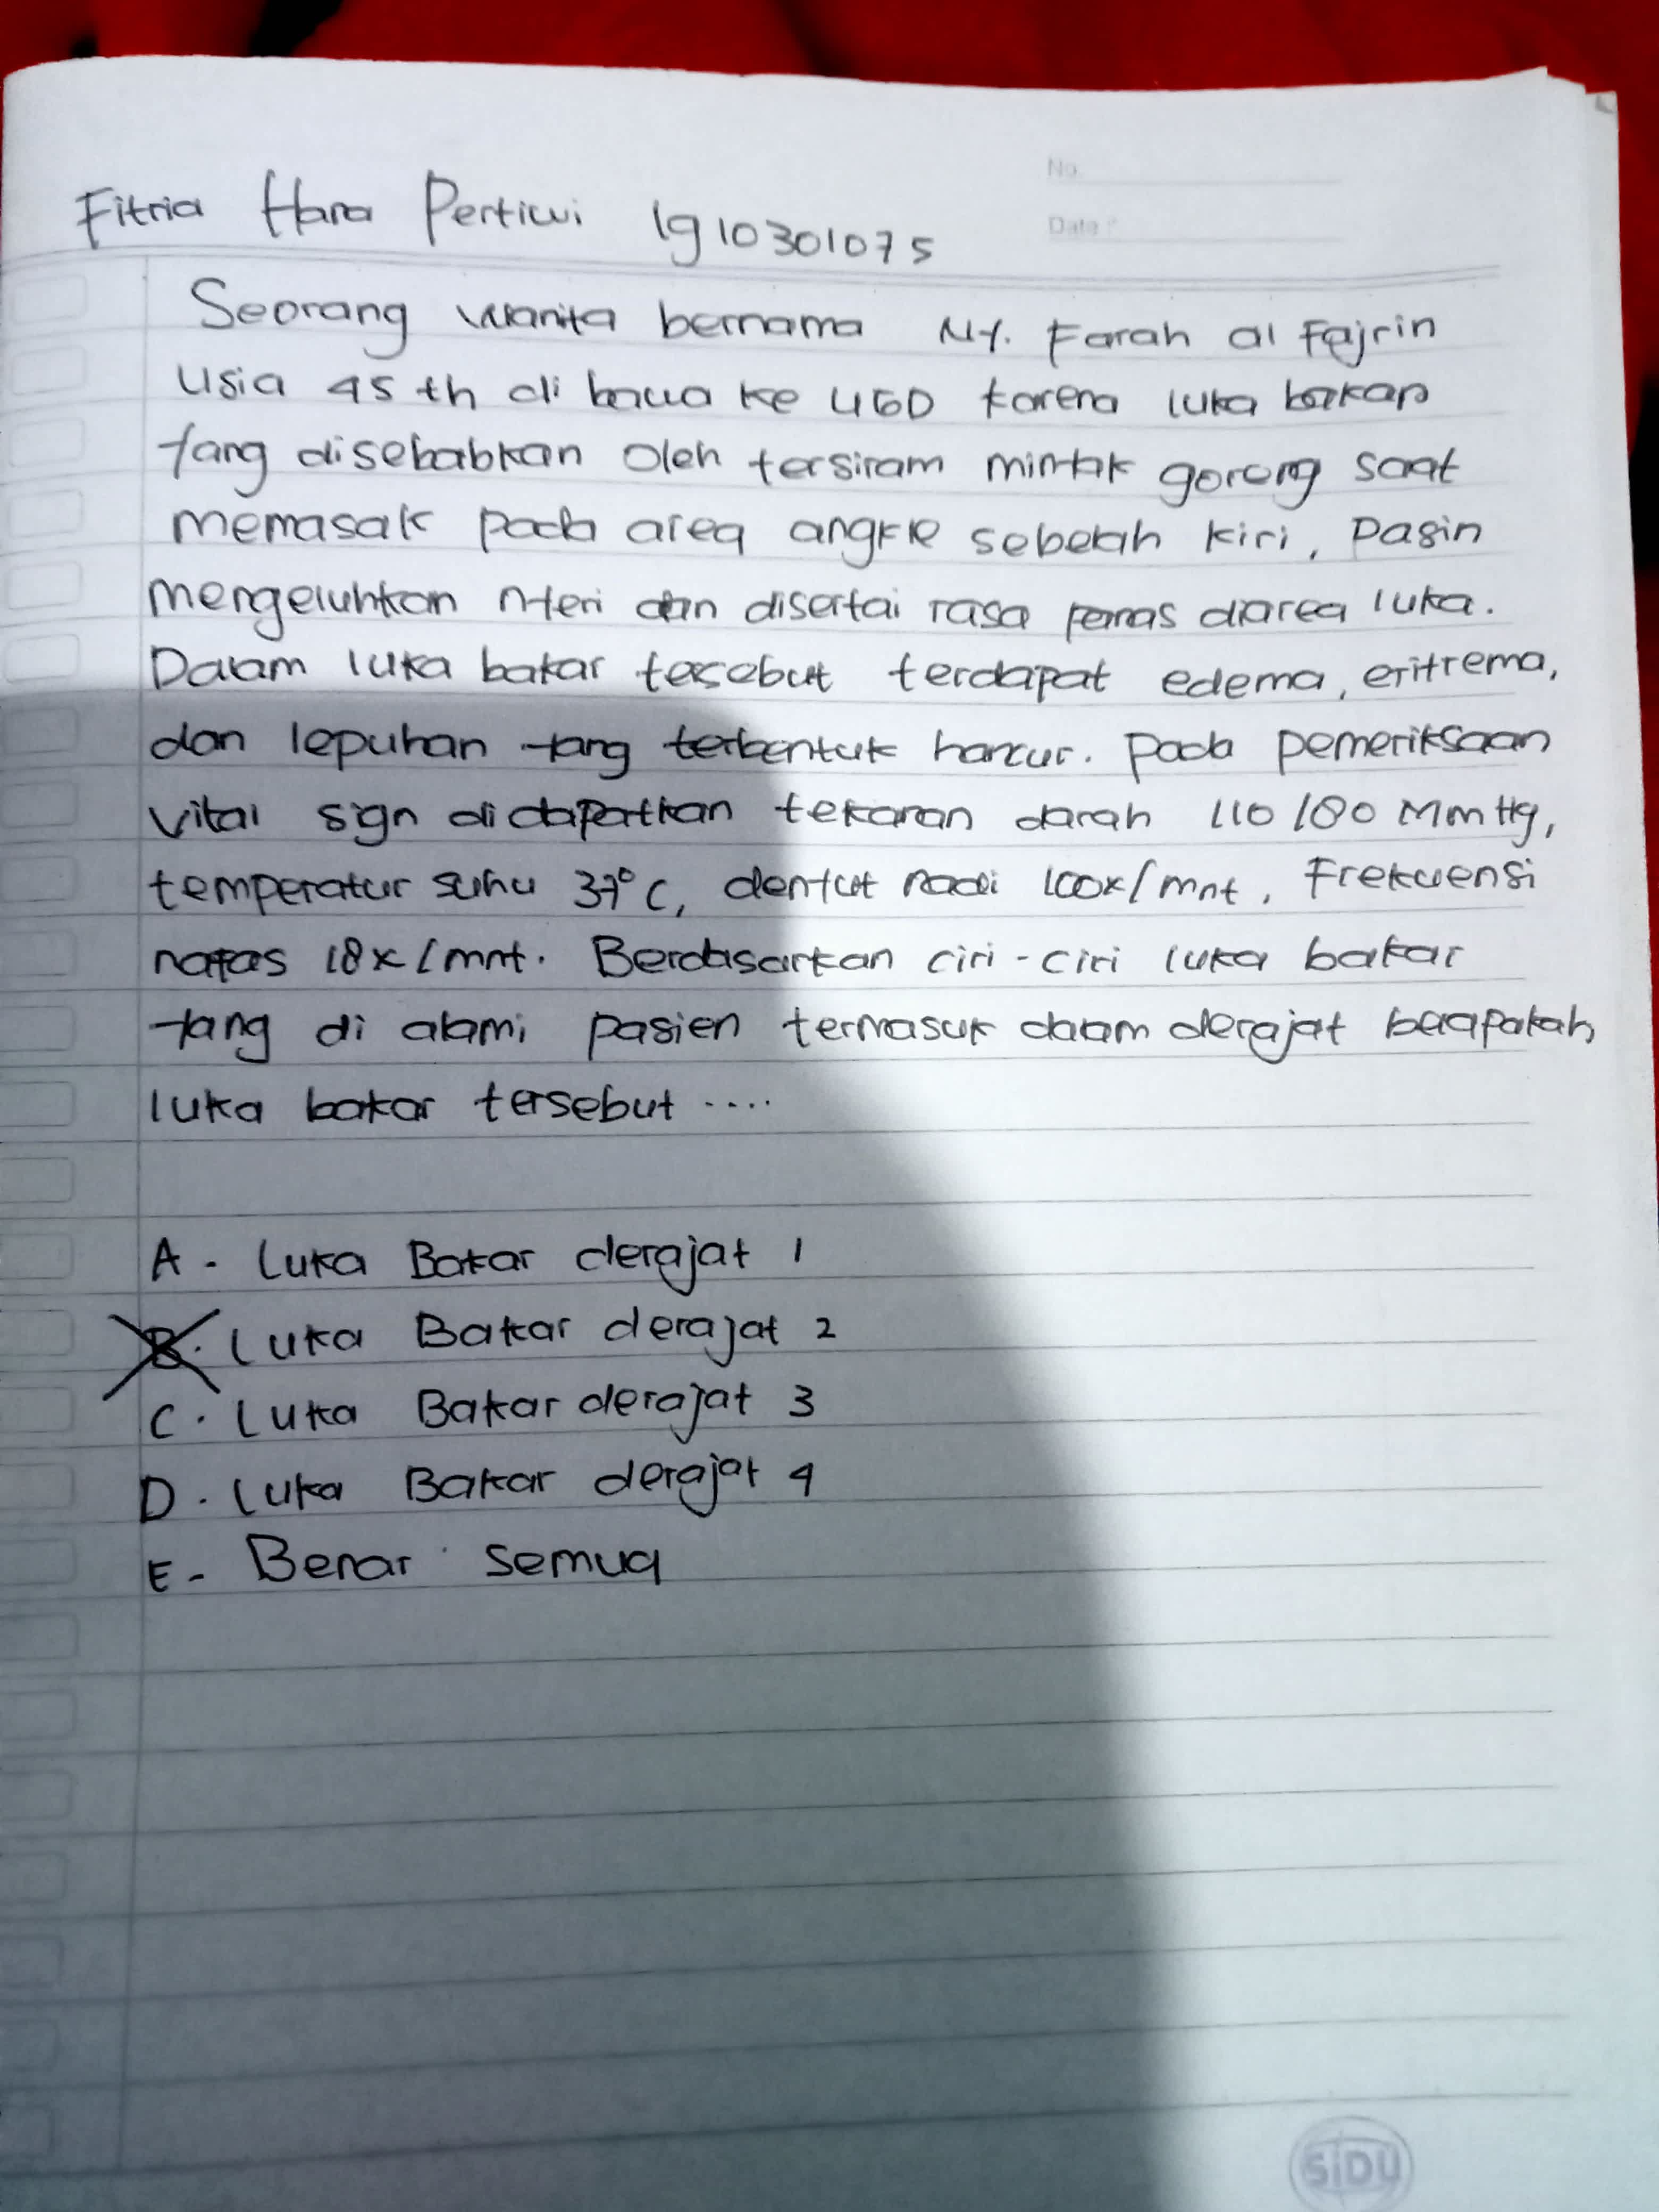 No.
Fitria Hana Pertiwi 1910301075
Date :
Seorang wanita bernama Ny. Farah al Fajrin
Usia 45 th di bawa ke UGD karena luka
yang disebabkan oleh tersiram mintak goreng saat
memasak pada area angkle sebelah kiri, Pasin
mengeluhkan nyeri dan disertai rasa panas diarea luka.
Dalam luka bakar tesebut terdapat edema, eritrema,
dan lepuhan yang terbentuk hancur. Pada pemeriksaan
vital sign di dapatkan tekanan darah 110/80 MmHg,
temperatur suhu 37°C, denyut nadi 100x/mnt, Frekuensi
nafas 18x/mnt. Berdasarkan ciri-ciri luka bakar
yang di alami pasien termasuk dalam derajat berapakah
luka bakar tersebut ....
A. Luka Bakar derajat 1
B. Luka Bakar derajat 2
C. Luka Bakar derajat 3
D. Luka Bakar derajat 4
E. Benar semua
SiDU